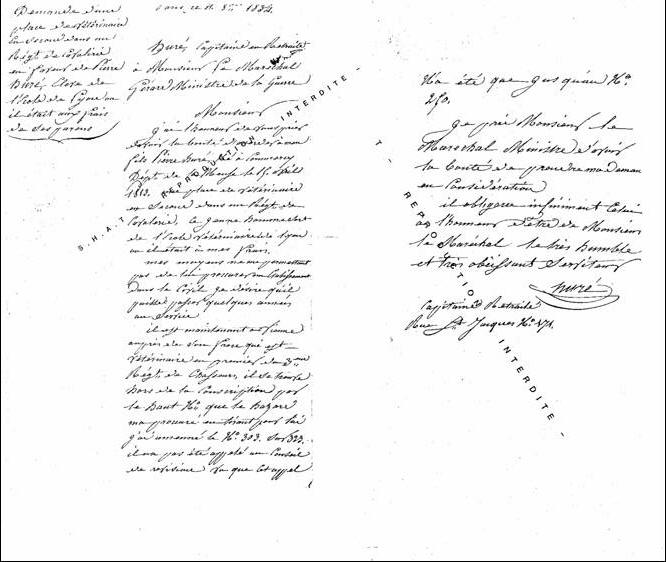 Demande d'une
place de vétérinaire
en Second dans un
Régt de Cavalerie
en faveur de Pierre
Huré, Elève de
l'école de Lyon ou
il était aux frais
de ses parens
ce 11 1834.
Huré, Capitaine en Retraite
à Monsieur le Maréchal
Gérard Ministre de la Guerre
Monsieur
j'ai l'honneur de vous prier
d'avoir la bonté d'accorder à mon
fils Pierre Huré, né à Commercy
Dépt de la Meuse le 15 avril
1813. une place de vétérinaire
en Second dans un Régt de
Cavalerie, le jeune homme sort
de l'école vétérinaire de Lyon
ou il était à mes frais.
mes moyens ne me permettant
pas de lui procurer un Etablissement
dans le Civil je désire qu'il
puisse passer quelques années
au Service
il est maintenant a Vienne
auprès de son frère qui est
vétérinaire en premier du 3me
Régt de Chasseurs, il se trouve
hors de la Conscription par
le haut No que le hazard
m'a procuré en tirant pour lui
j'ai amené le No 303. sur 323.
il n'a pas été appelé au Conseil
de révision vu que l'appel
N'a été que jusqu'au No
250.
Je prie Monsieur le
Maréchal Ministre d'avoir
la bonté de prendre ma demande
en Considération
il obligera infiniment Celui
qui a l'honneur d'être de Monsieur
le Maréchal le très humble
et très obéissant Serviteur
Huré
Capitaine Retraité
Rue St Jacques No 171.
S.H.A.T. - REPRODUCTION INTERDITE -
T. - REPRODUCTION INTERDITE -